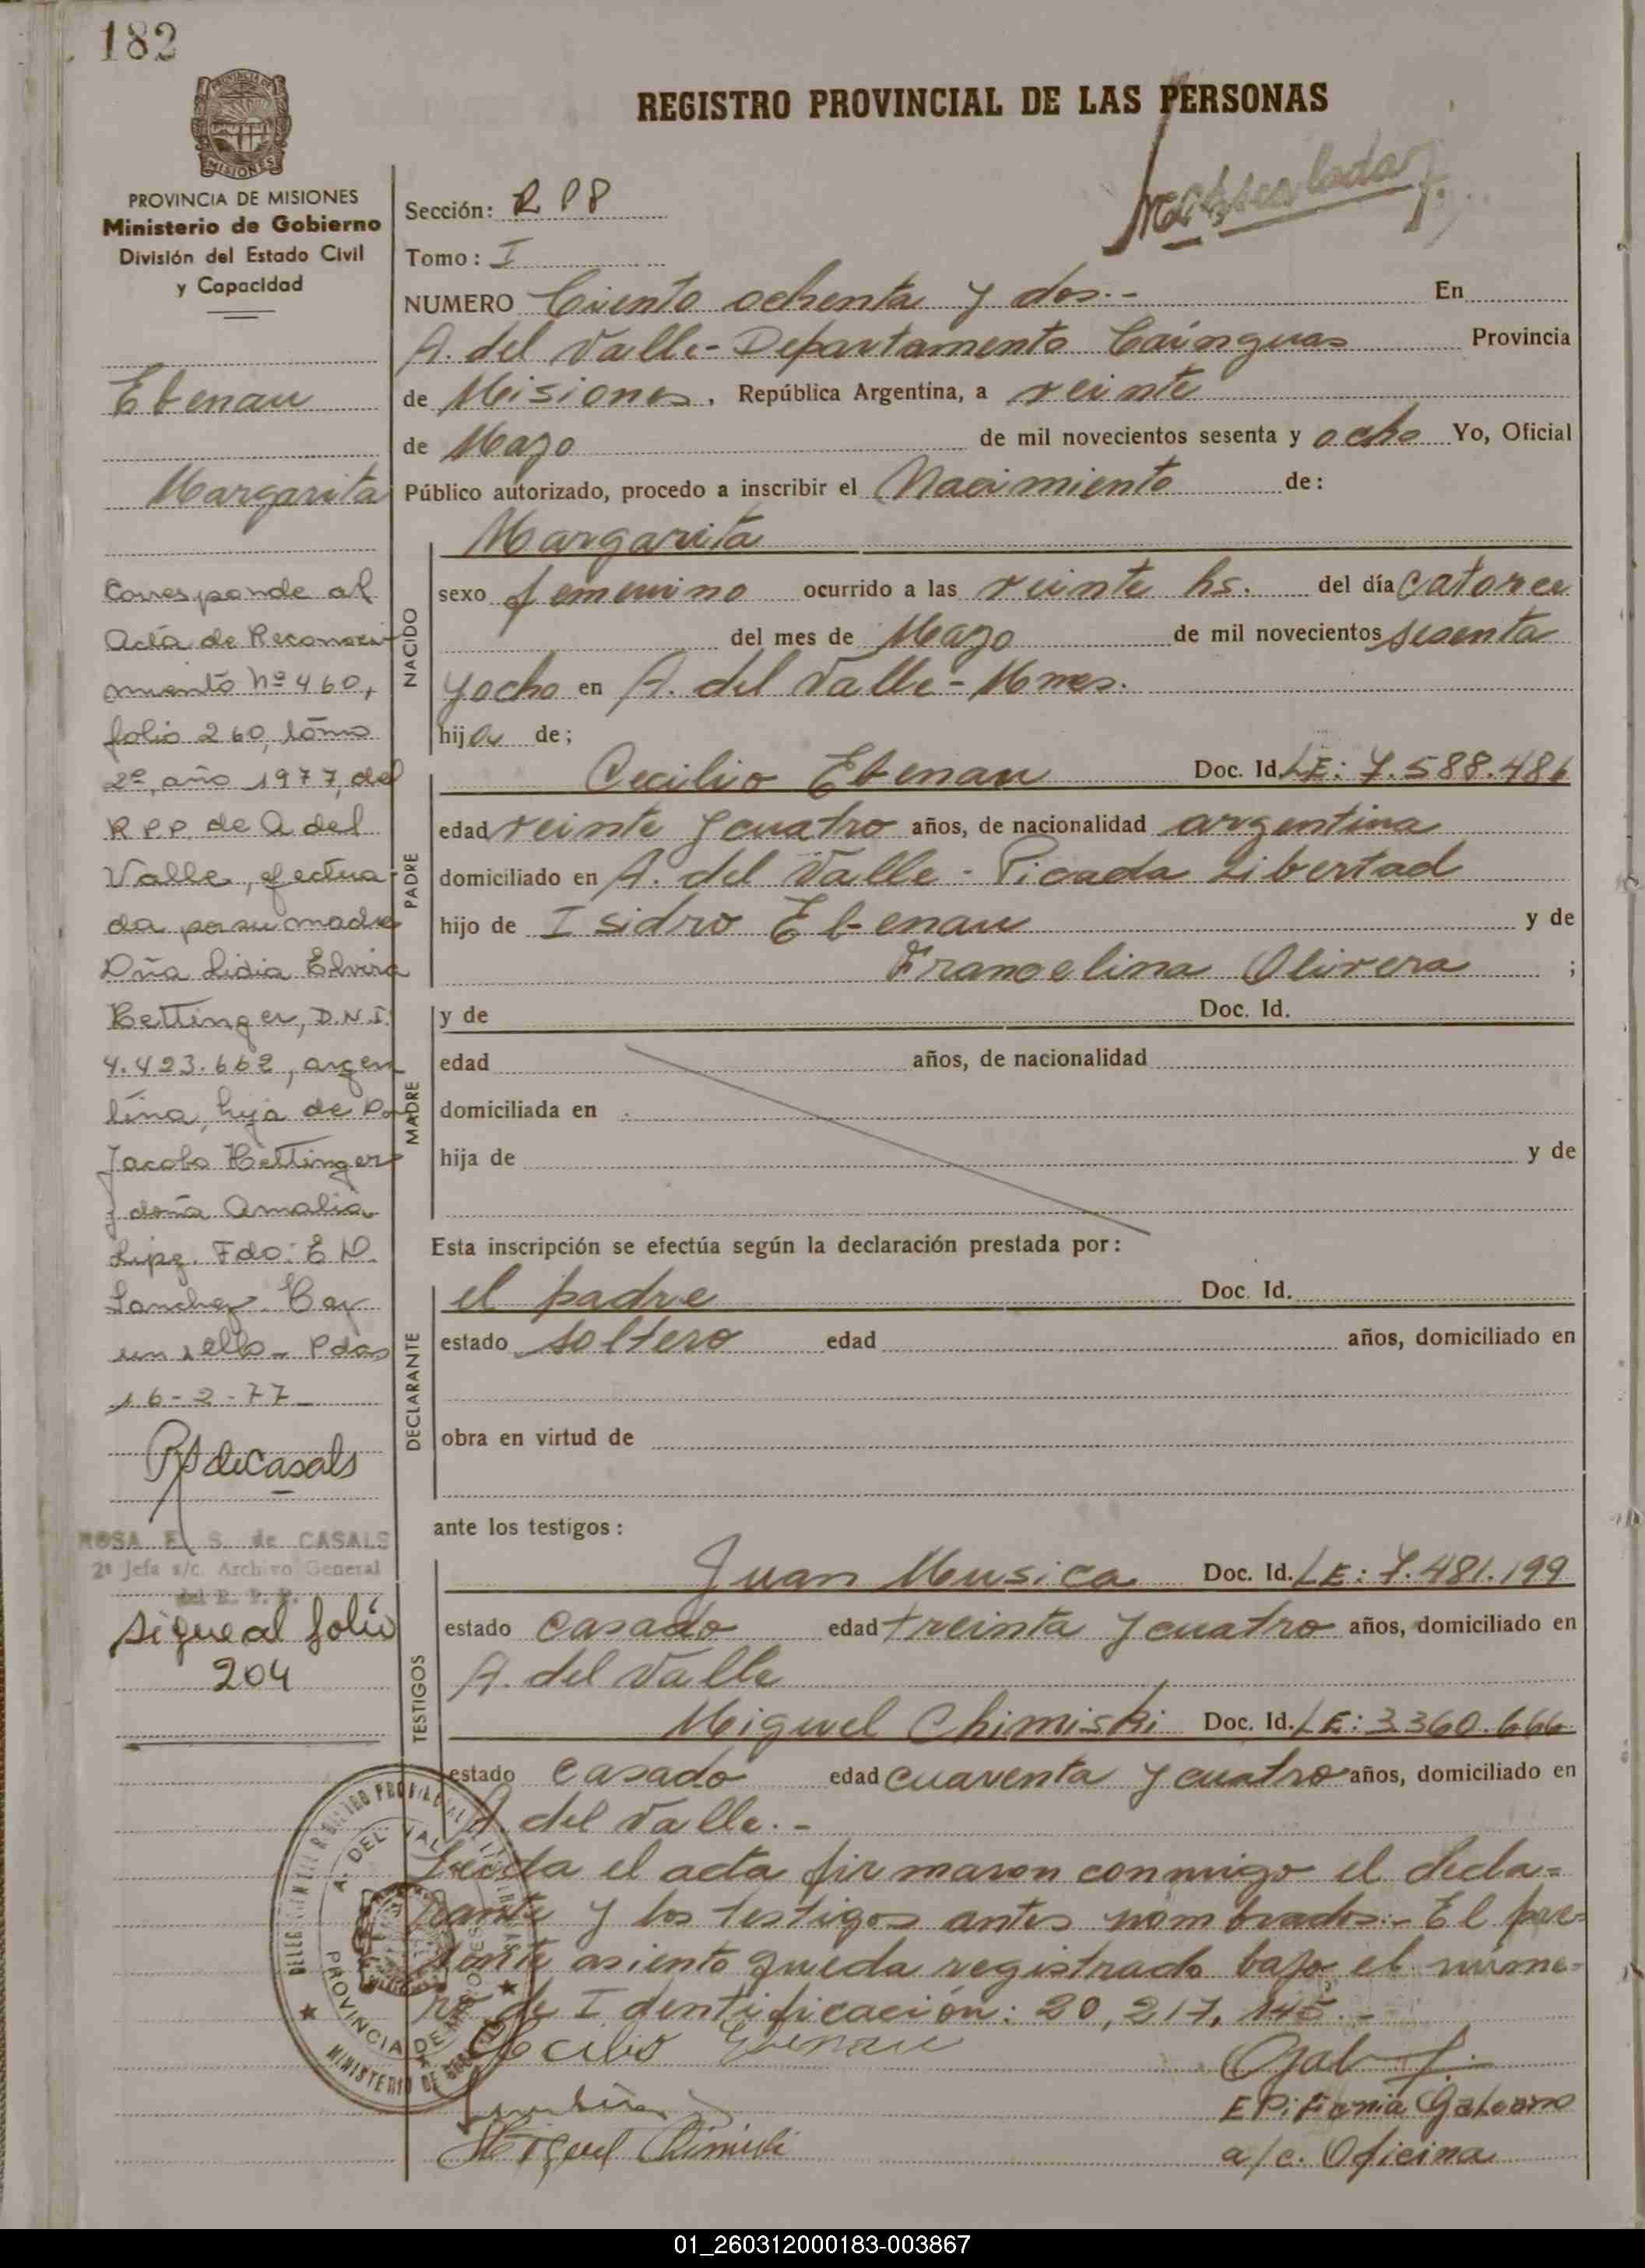 182
REGISTRO PROVINCIAL DE LAS PERSONAS
PROVINCIA DE MISIONES
Ministerio de Gobierno
División del Estado Civil
y Capacidad
Ebenau
Margarita
Corresponde al
Acta de Reconoci
miento Nº 460,
folio 260, tomo
2º, año 1977, del
R P P. de A del
Valle, efectua-
da por su madre
Dña Lidia Elvira
Hettinger, D.N.I.
4.423.662, argen
tina, hija de Dn
Jacobo Hettinger
y doña Amalia
Lipz. Fdo: E D.
Sanchez. Hay
un sello - Pdas
16-2-77
RS de Casals
ROSA E. S. de CASALS
2ª Jefa s/c. Archivo General
del R. P. P.
Sigue al folio
204
Sección: R P P
Tomo: I
NUMERO Ciento ochenta y dos.- En
A. del Valle- Departamento Cainguas Provincia
de Misiones, República Argentina, a veinte
de Mayo de mil novecientos sesenta y ocho Yo, Oficial
Público autorizado, procedo a inscribir el Nacimiento de:
NACIDO
Margarita
sexo femenino ocurrido a las veinte hs. del día catorce
del mes de Mayo de mil novecientos sesenta
y ocho en A. del Valle - Mnes.
hija de;
PADRE
Cecilio Ebenau Doc. Id. LE: 7.588.486
edad veinte y cuatro años, de nacionalidad argentina
domiciliado en A. del Valle - Picada Libertad
hijo de Isidro Ebenau y de
Francelina Olivera ;
MADRE
y de Doc. Id.
edad años, de nacionalidad
domiciliada en
hija de y de
Esta inscripción se efectúa según la declaración prestada por:
DECLARANTE
el padre Doc. Id.
estado soltero edad años, domiciliado en
obra en virtud de
ante los testigos:
TESTIGOS
Juan Musica Doc. Id. LE: 7.481.199
estado casado edad treinta y cuatro años, domiciliado en
A. del Valle
Miguel Chimiski Doc. Id. LE: 3360.666
estado casado edad cuarenta y cuatro años, domiciliado en
A. del Valle.-
Leida el acta firmaron conmigo el decla=
rante y los testigos antes nombrados.- El pre=
sente asiento queda registrado bajo el núme=
ro de Identificación: 20,217,145.-
Cecilio Ebenau
Epifania Galeano
Miguel Chimiski
a/c. Oficina
01_260312000183-003867